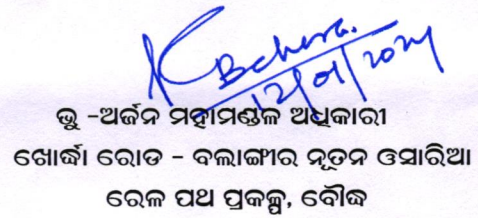 KBehera.
ଭୁ -ଅର୍ଜନ ମହାମଣ୍ଡଳ ଅଧିକାରୀ
ଖୋର୍ଦ୍ଧା ରୋଡ - ବଲାଙ୍ଗୀର ନୂତନ ଓସାରିଆ
ରେଳ ପଥ ପ୍ରକଳ୍ପ, ବୌଦ୍ଧ